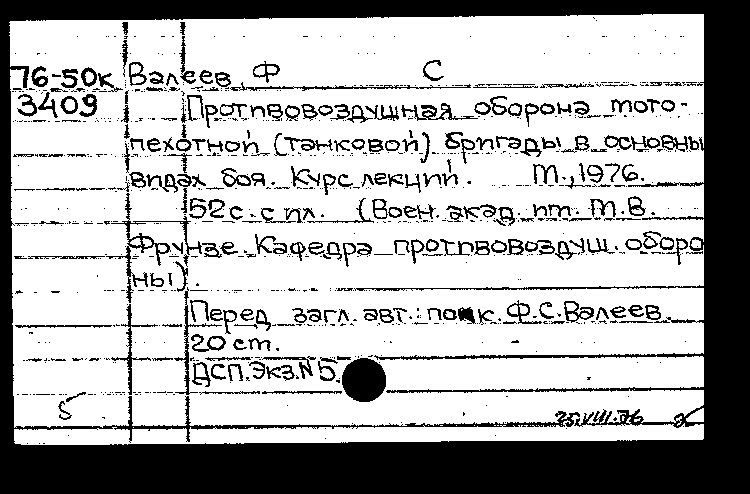 76-50к Валеев, Ф С
3409 Противовоздушная оборона мото-
пехотной (танковой) бригады в основны
видах боя. Курс лекций. М.,1976.
52с. с ил. (Воен. акад. им. М.В.
Фрунзе. Кафедра противовоздуш. оборо
ны).
Перед загл. авт.: полк. Ф.С.Валеев.
20 см.
ДСП. Экз.N 5.
5 25.VIII.76